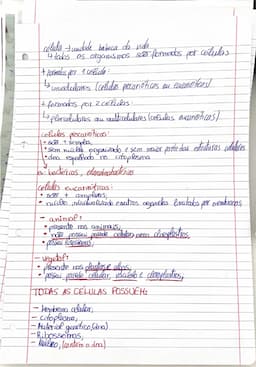 célula → unidade básica da vida
↳ todos os organismos são formados por células
+ formados por 1 célula:
↳ unicelulares (células procarióticas ou eucarióticas)
+ formados por 2 células:
↳ pluricelulares ou multicelulares (células eucarióticas)
células procarióticas:
• são + simples
• sem núcleo organizado e sem maior parte das estruturas celulares
• dna espalhado no citoplasma
bactérias,
células eucarióticas:
• são + complexas
• núcleo e outras organelas limitados por membranas
- animal:
• presente nos animais
• não possui parede celular nem cloroplastos
• possui
- vegetal:
• presente nas plantas e algas
• possui parede celular, vacúolo e cloroplastos
TODAS AS CÉLULAS POSSUEM:
- Membrana celular,
- Citoplasma,
- Material genético (dna)
- Ribossomos,
- Núcleo, (contém o dna)